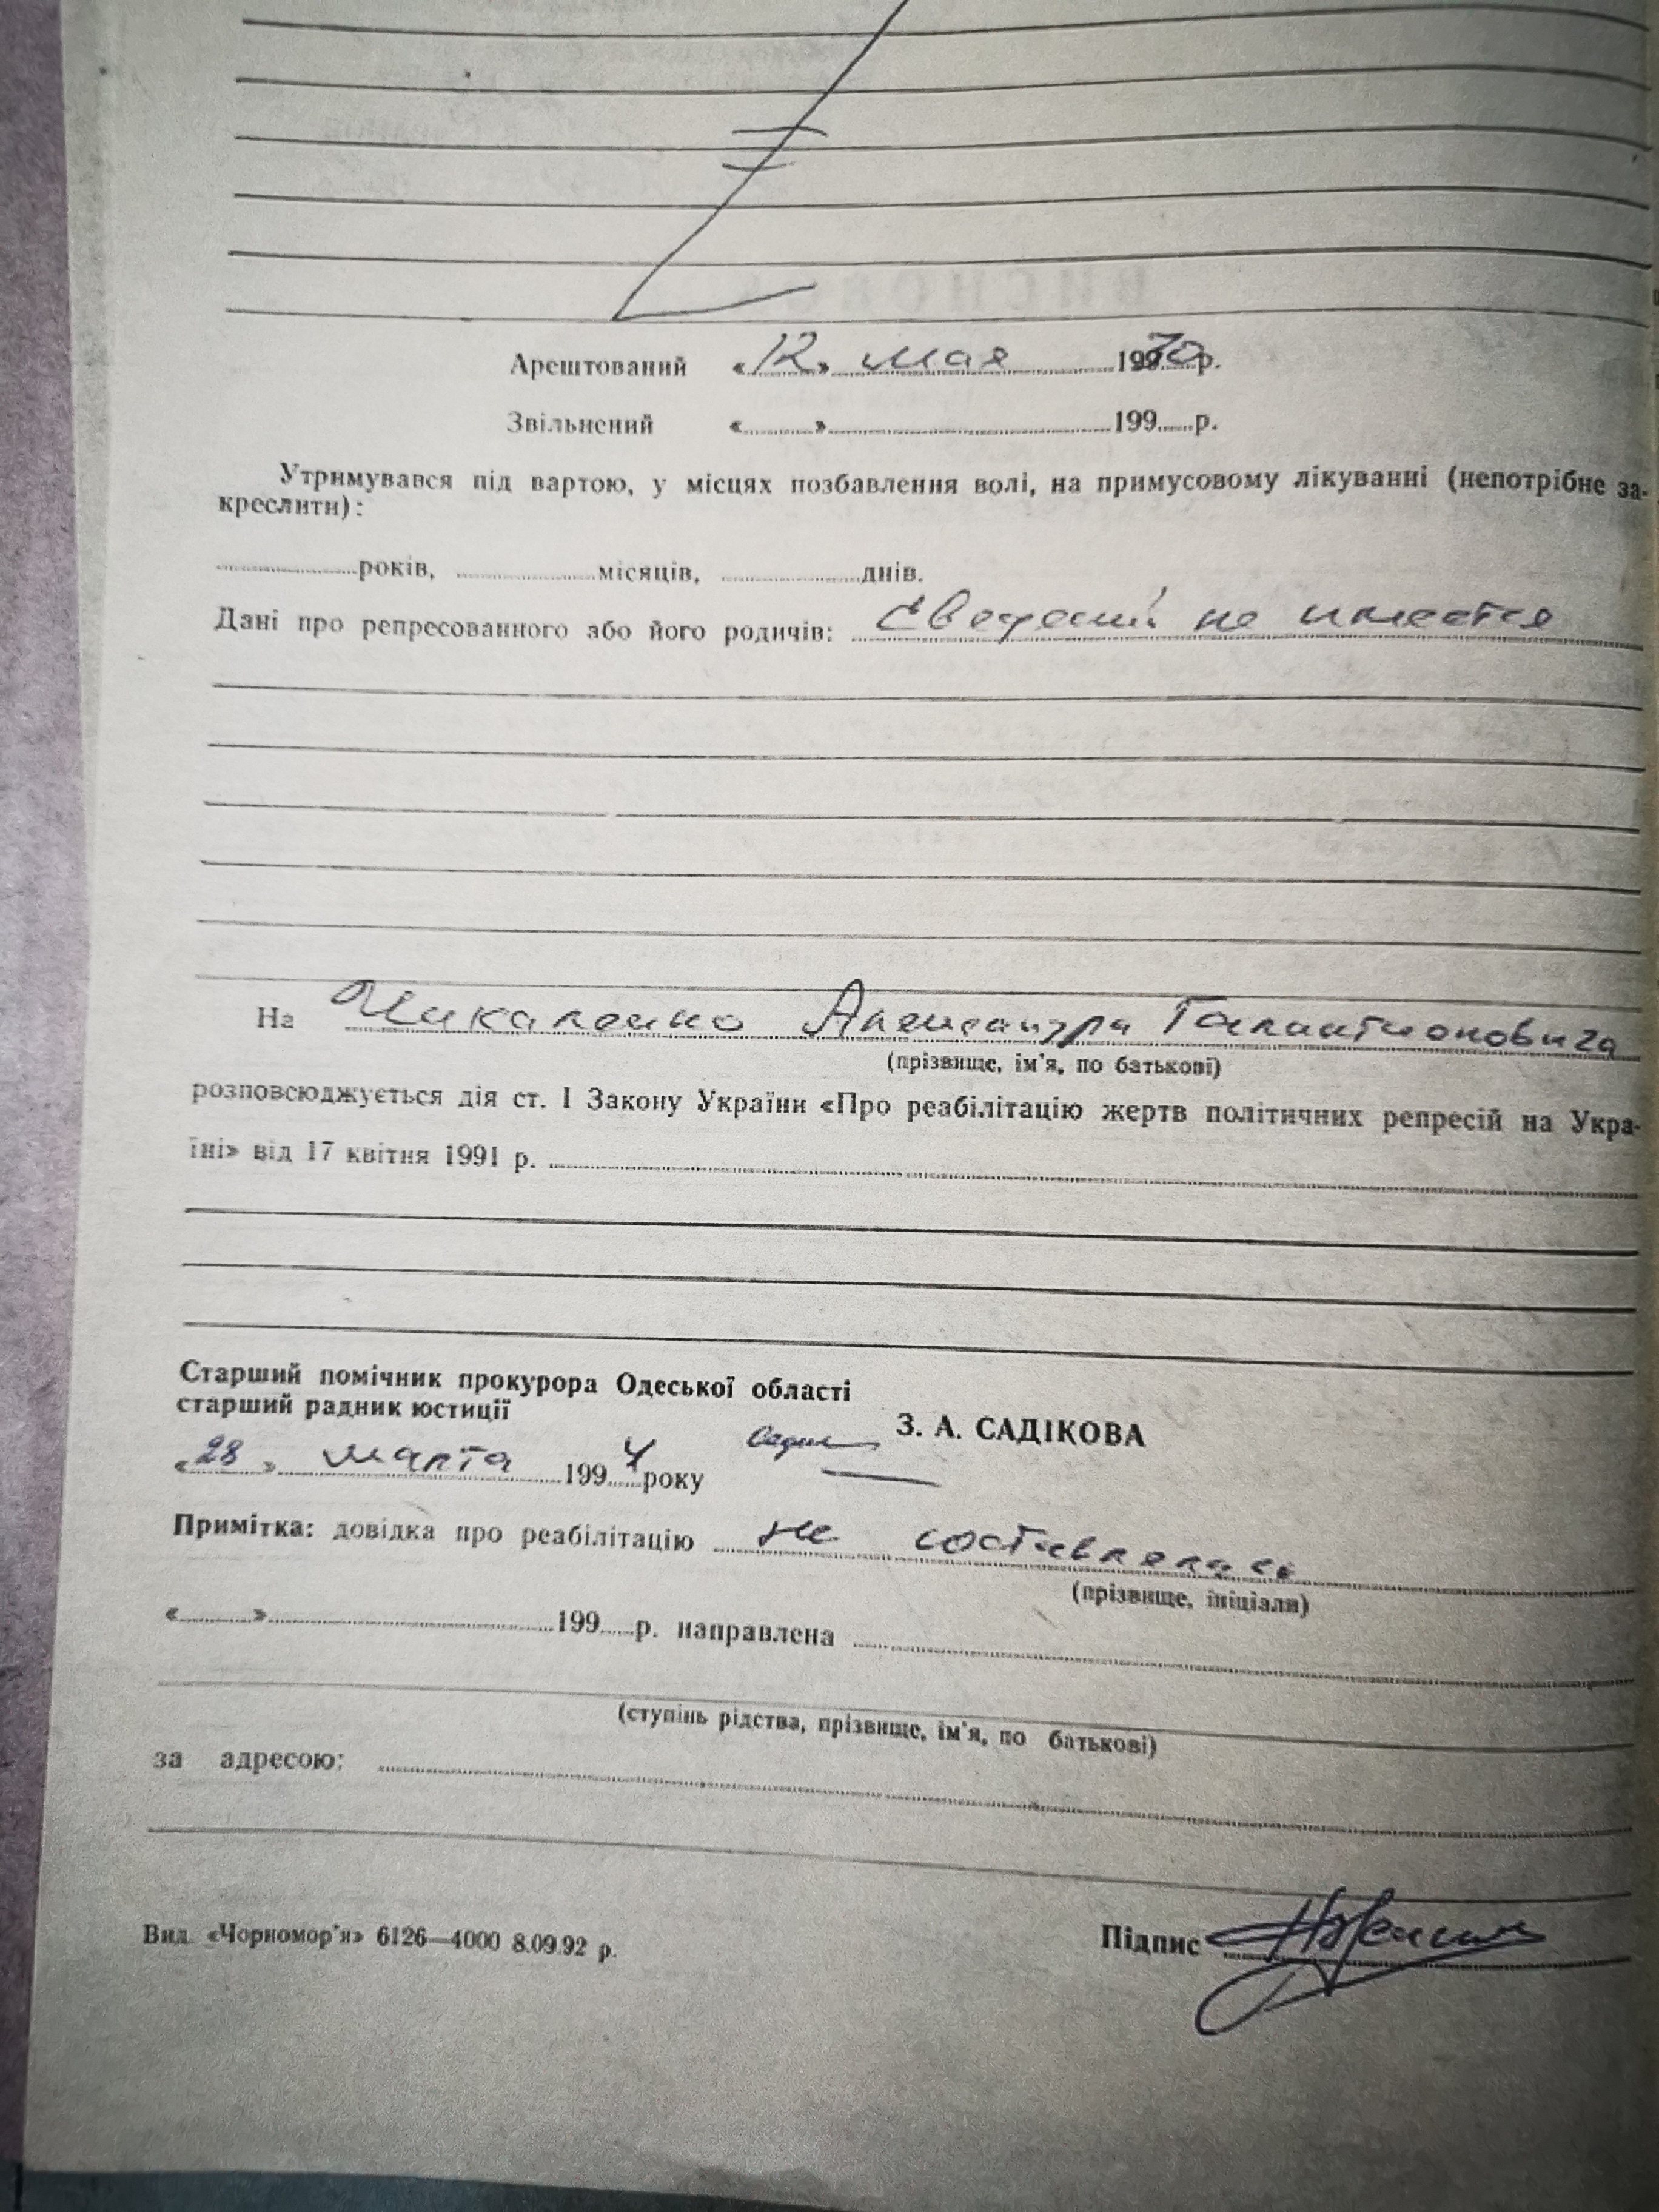 Арештований «12» мая 1930 р.
Звільнений «......» ............ 199.....р.
Утримувався під вартою, у місцях позбавлення волі, на примусовому лікуванні (непотрібне за-
креслити):
............років, ............місяців, ............днів.
Дані про репресованного або його родичів: Сведений не имеется
На Чикаленко Александра Галактионовича
(прізвище, ім'я, по батькові)
розповсюджується дія ст. І Закону України «Про реабілітацію жертв політичних репресій на Укра-
їні» від 17 квітня 1991 р.
Старший помічник прокурора Одеської області
старший радник юстиції
З. А. САДІКОВА
«28» марта 1994 року
Примітка: довідка про реабілітацію не составлялась
(прізвище, ініціали)
«......» ............ 199.....р. направлена
(ступінь рідства, прізвище, ім'я, по батькові)
за адресою:
Вид. «Чорномор'я» 6126—4000 8.09.92 р.
Підпис